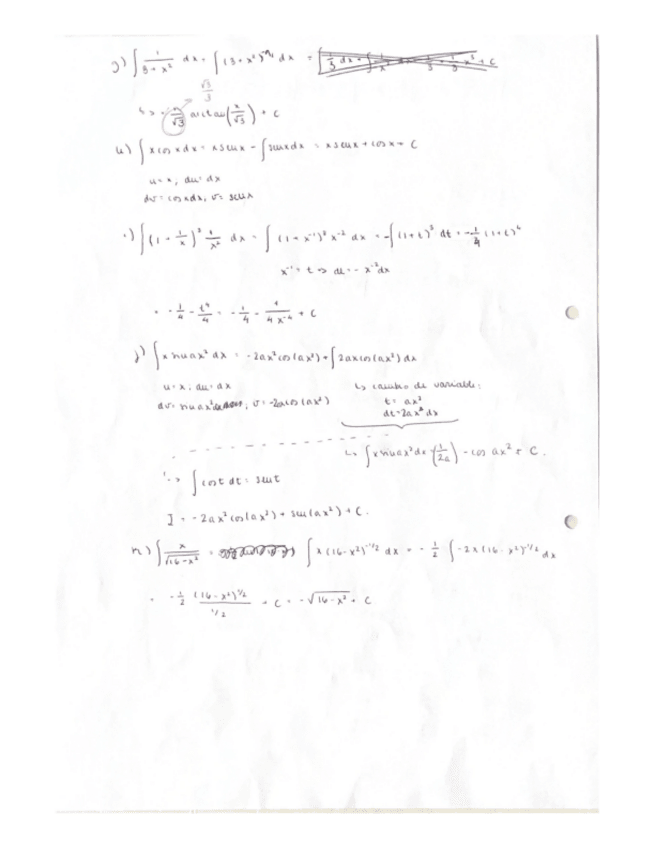 g) ∫ 1/(3+x²) dx = ∫ (3+x²)⁻¹ dx =
√3/3
↳ 1/√3 arctan(x/√3) + C
h) ∫ x cos x dx = x sen x - ∫ sen x dx = x sen x + cos x + C
u = x ; du = dx
dv = cos x dx, v = sen x
i) ∫ (1 + 1/x)³ 1/x² dx = ∫ (1 + x⁻¹)³ x⁻² dx = -∫ (1+t)³ dt = -1/4 (1+t)⁴
x⁻¹ = t => dt = - x⁻² dx
= -1/4 - t⁴/4 = -1/4 - 1/(4x⁻⁴) + C
j) ∫ x sen ax² dx = -2ax² cos(ax²) + ∫ 2ax cos(ax²) dx
u = x ; du = dx
↳ cambio de variable:
dv = sen ax² ; v = -2ax cos(ax²)
t = ax²
dt = 2ax dx
↳ ∫ x sen ax² dx (1/2a) - cos ax² + C.
↳ ∫ cos t dt = sen t
I = -2ax² cos(ax²) + sen(ax²) + C.
∫ x/√(16-x²) = ∫ x(16-x²)^(-1/2) dx = -1/2 ∫ -2x(16-x²)^(-1/2) dx
= -1/2 (16-x²)^(1/2)/(1/2) + C = -√(16-x²) + C